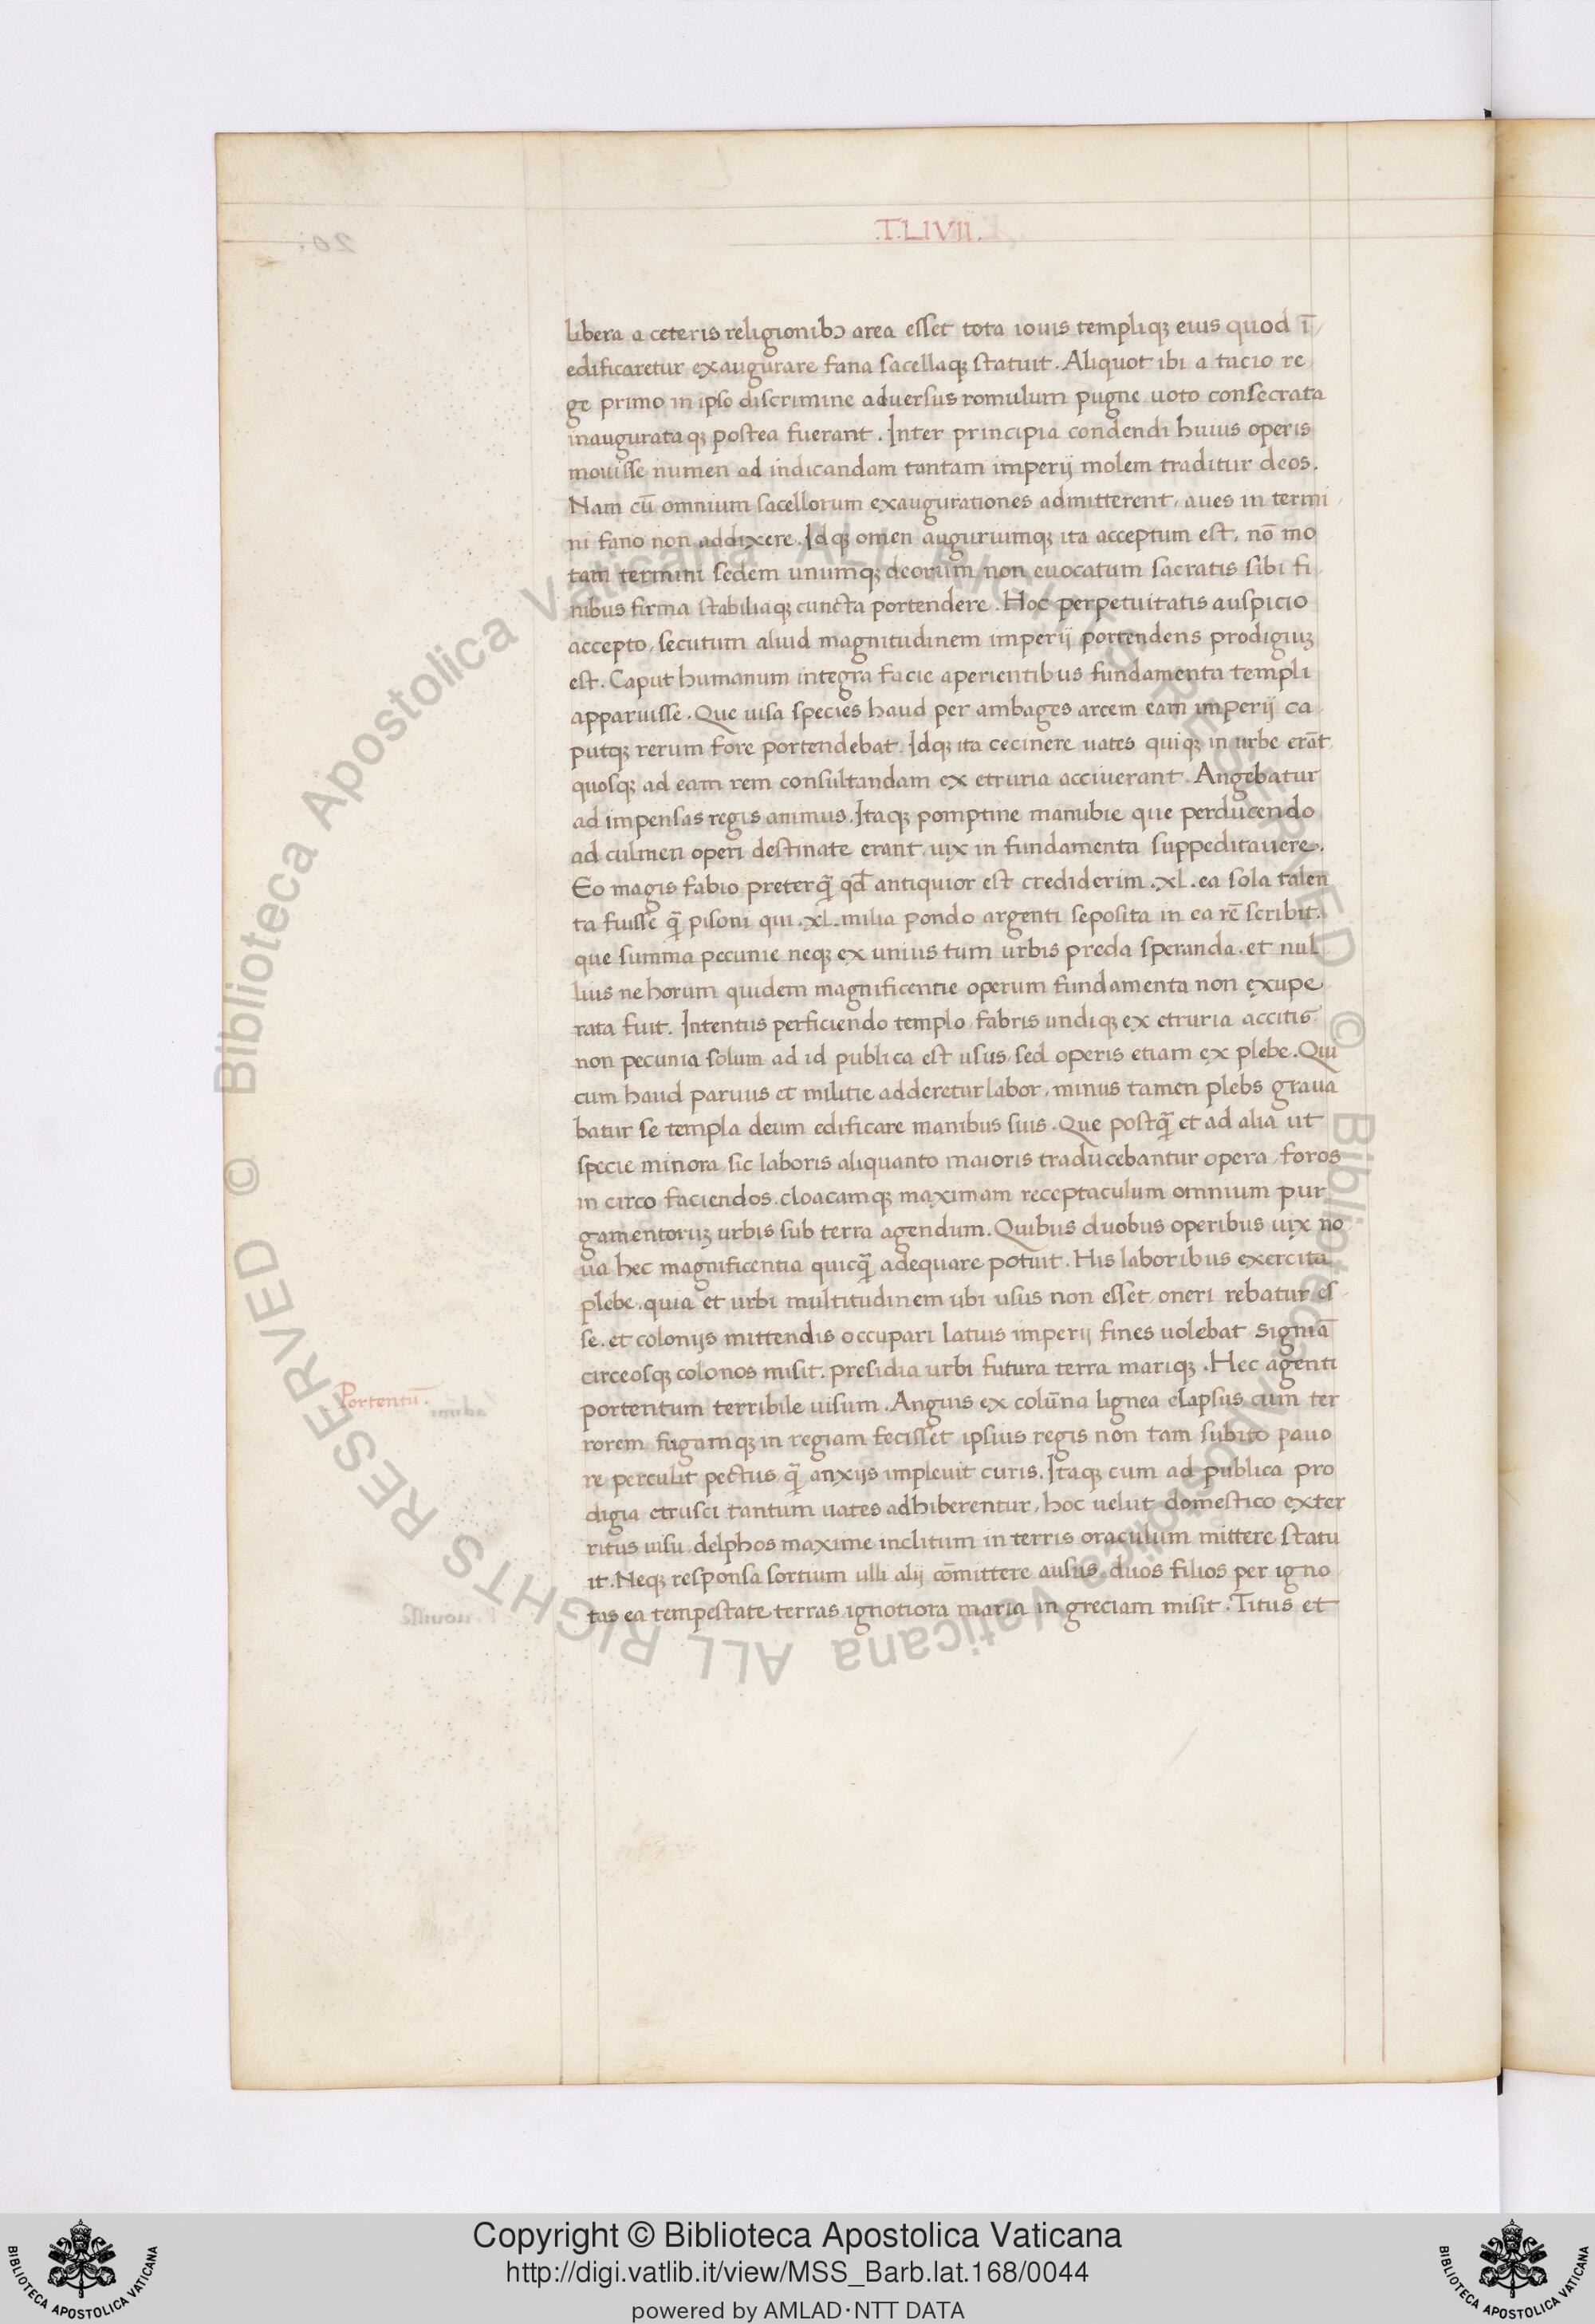 .T.LIVII.
libera a ceteris religionibꝫ area esset tota iouis templiqꝫ eius quod ī
edificaretur exaugurare fana sacellaqꝫ statuit. Aliquot ibi a tacio re
ge primo in ipso discrimine aduersus romulum pugne uoto consecrata
inaugurata qꝫ postea fuerant. Inter principia condendi huius operis
mouisse numen ad indicandam tantam imperij molem traditur deos.
Nam cū omnium sacellorum exaugurationes admitterent, aues in termi
ni fano non addixere. Idqꝫ omen auguriumqꝫ ita acceptum est, nō mo
tam termini sedem unumqꝫ deorum non euocatum sacratis sibi fi
nibus firma stabiliaqꝫ cuncta portendere. Hoc perpetuitatis auspicio
accepto, secutum aliud magnitudinem imperij portendens prodigiuꝫ
est. Caput humanum integra facie aperientibus fundamenta templi
apparuisse. Que uisa species haud per ambages arcem eam imperij ca
putqꝫ rerum fore portendebat. Idqꝫ ita cecinere uates quiqꝫ in urbe erāt,
quosqꝫ ad eam rem consultandam ex etruria acciuerant. Angebatur
ad impensas regis animus. Itaqꝫ pomptine manubie que perducendo
ad culmen operi destinate erant, uix in fundamenta suppeditauere.
Eo magis fabio preterq̄ qd̄ antiquior est crediderim .xl. ea sola talen
ta fuisse q̄ pisoni qui .xl. milia pondo argenti seposita in ea rē scribit.
que summa pecunie neqꝫ ex unius tum urbis preda speranda. et nul
lius ne horum quidem magnificentie operum fundamenta non exupe
rata fuit. Intentus perficiendo templo, fabris undiqꝫ ex etruria accitis
non pecunia solum ad id publica est usus, sed operis etiam ex plebe. Qui
cum haud paruus et militie adderetur labor, minus tamen plebs graua
batur se templa deum edificare manibus suis. Que postq̄ et ad alia ut
specie minora, sic laboris aliquanto maioris traducebantur opera, foros
in circo faciendos. cloacamqꝫ maximam receptaculum omnium pur
gamentoruꝫ urbis sub terra agendum. Quibus duobus operibus uix no
ua hec magnificentia quicq̄ adequare potuit. His laboribus exercita
plebe. quia et urbi multitudinem ubi usus non esset, oneri rebatur es
se. et colonijs mittendis occupari latius imperij fines uolebat signiā
circeosqꝫ colonos misit. presidia urbi futura terra mariqꝫ. Hec agenti
portentum terribile uisum. Anguis ex colūna lignea elapsus cum ter
rorem fugamqꝫ in regiam fecisset ipsius regis non tam subito pauo
re perculit pectus, q̄ anxijs impleuit curis. Itaqꝫ cum ad publica pro
digia etrusci tantum uates adhiberentur, hoc uelut domestico exter
ritus uisu, delphos maxime inclitum in terris oraculum mittere statu
it. Neqꝫ responsa sortium ulli alij cōmittere ausus, duos filios per igno
tas ea tempestate terras ignotiora maria in greciam misit. Titus et
Portentū.
Copyright © Biblioteca Apostolica Vaticana
http://digi.vatlib.it/view/MSS_Barb.lat.168/0044
powered by AMLAD·NTT DATA
BIBLIOTECA APOSTOLICA VATICANA
BIBLIOTECA APOSTOLICA VATICANA
© Biblioteca Apostolica Vaticana ALL RIGHTS RESERVED
© Biblioteca Apostolica Vaticana ALL RIGHTS RESERVED